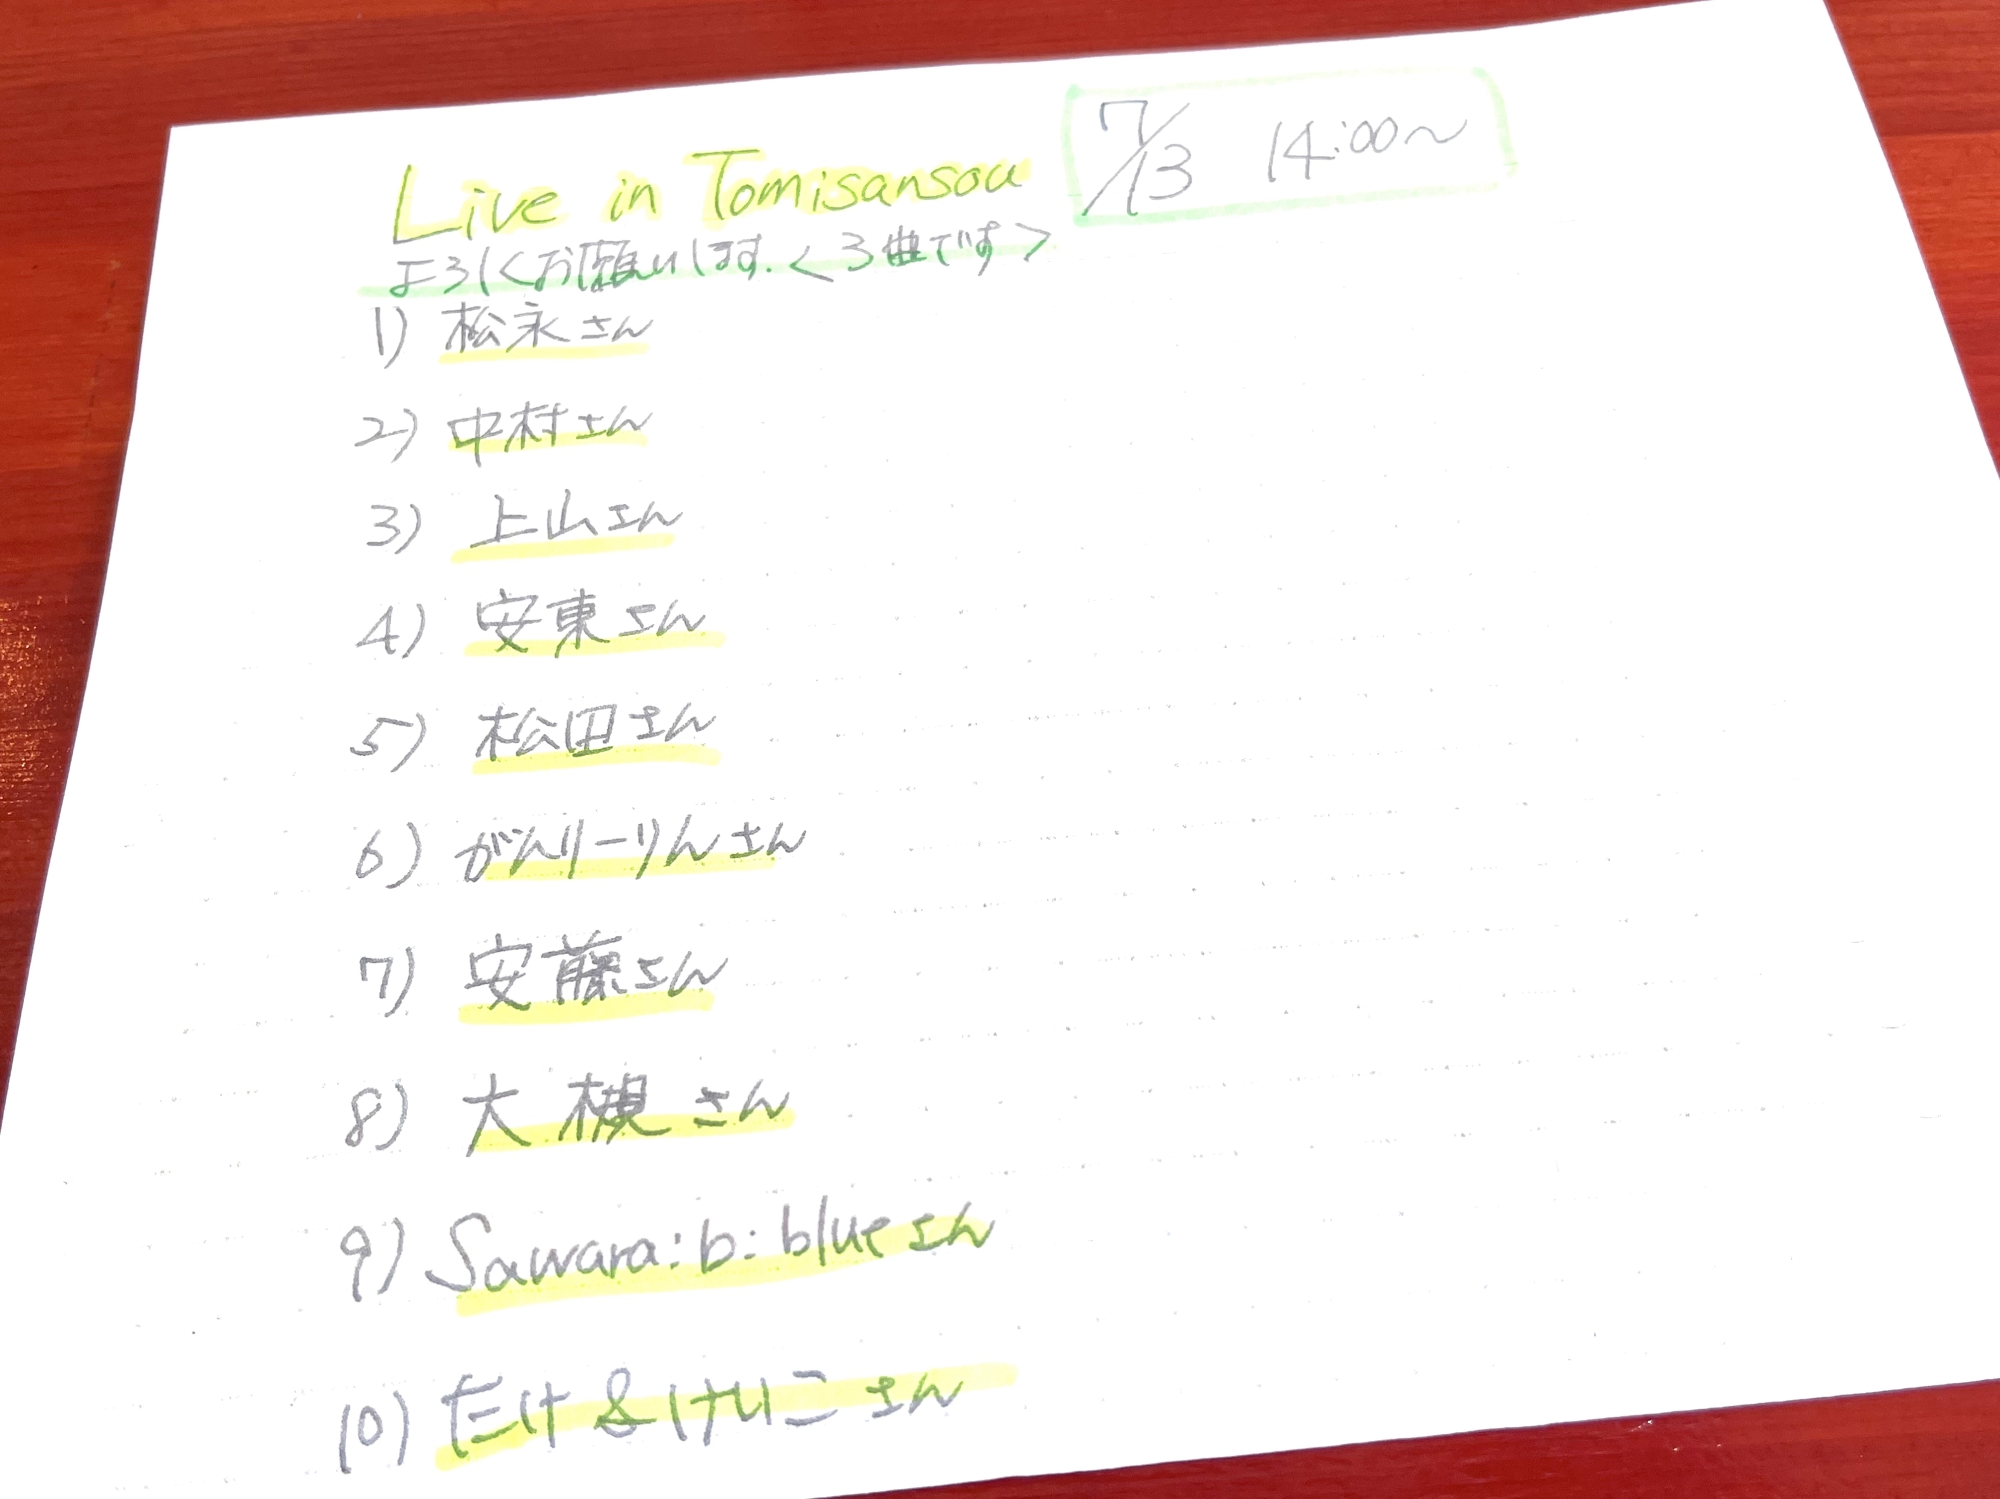 Live in Tomisansou
7/13 14:00〜
よろしくお願いします.<3曲です>
1) 松永さん
2) 中村さん
3) 上山さん
4) 安東さん
5) 松田さん
6) がんりーりんさん
7) 安藤さん
8) 大槻さん
9) Sawara:b:blueさん
10) たけ&けいこさん